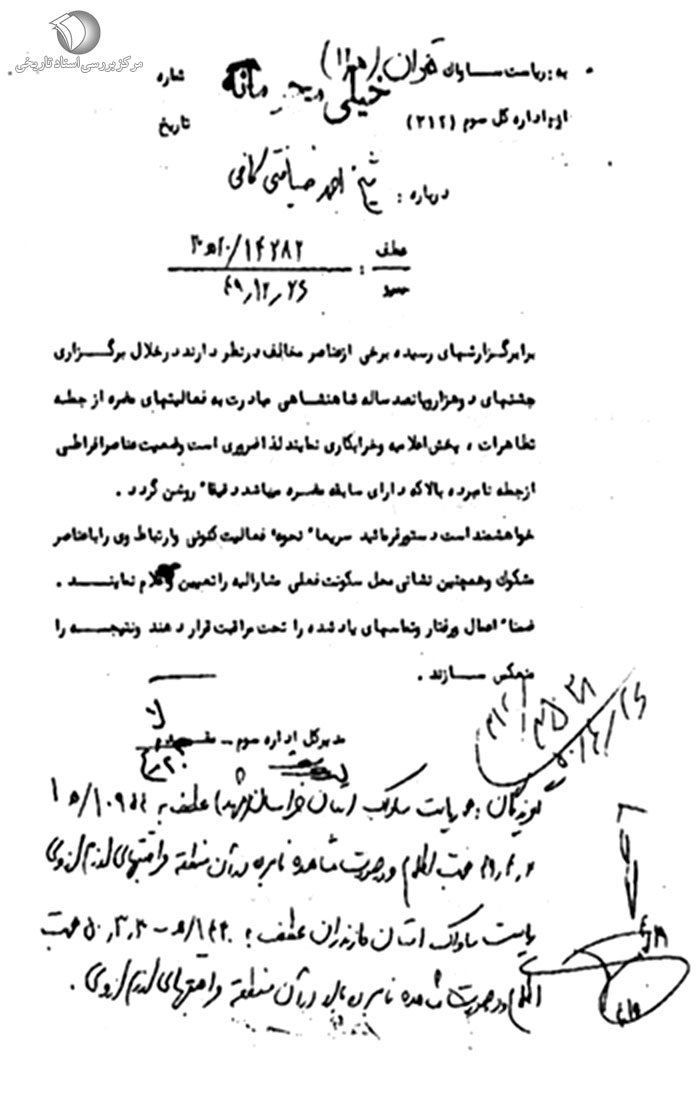 مرکز بررسی اسناد تاریخی
به : ریاست ساواک تهران (هـ ۱۲)
شماره
خیلی محرمانه
از : اداره کل سوم (۳۱۲)
تاریخ
درباره : شیخ احمد ضیافتی کافی
عطف : ۱۴۲۸۲/
۴۹٫۱۲٫۲۶
برابر گزارشهای رسیده برخی از عناصر مخالف در نظر دارند در خلال برگزاری
جشنهای دوهزار و پانصد ساله شاهنشاهی مبادرت به فعالیتهای مضره از جمله
تظاهرات ، پخش اعلامیه و خرابکاری نمایند لذا ضروری است وضعیت عناصر افراطی
از جمله نامبرده بالا که دارای سابقه مضره میباشد دقیقا" روشن گردد .
خواهشمند است دستور فرمائید سریعا" نحوه" فعالیت کنونی و ارتباط وی را با عناصر
مشکوک و همچنین نشانی محل سکونت فعلی مشارالیه را تعیین و اعلام نمایند .
ضمنا" اعمال و رفتار و تماسهای یاد شده را تحت مراقبت قرار دهند و نتیجه را
منعکس سازند .
مدیر کل اداره سوم - مقدم
گیرندگان : ریاست ساواک استان خراسان (مشهد) عطف به
جهت اطلاع و در صورت مشاهده نامبرده در آن منطقه مراقبتهای لازم از وی
ریاست ساواک استان مازندران عطف به ۵۰٫۳٫۳۰ جهت
اطلاع و در صورت مشاهده نامبرده بالا در آن منطقه مراقبتهای لازم از وی .